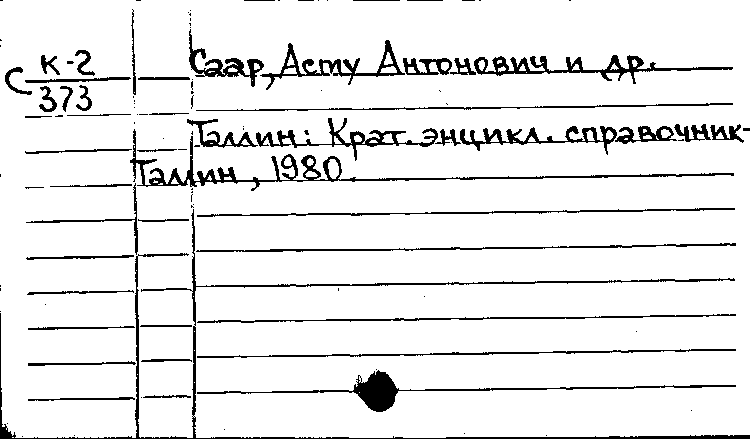 К-2
С
373
Саар, Асту Антонович и др.
Таллин: Крат. энцикл. справочник-
Таллин, 1980.